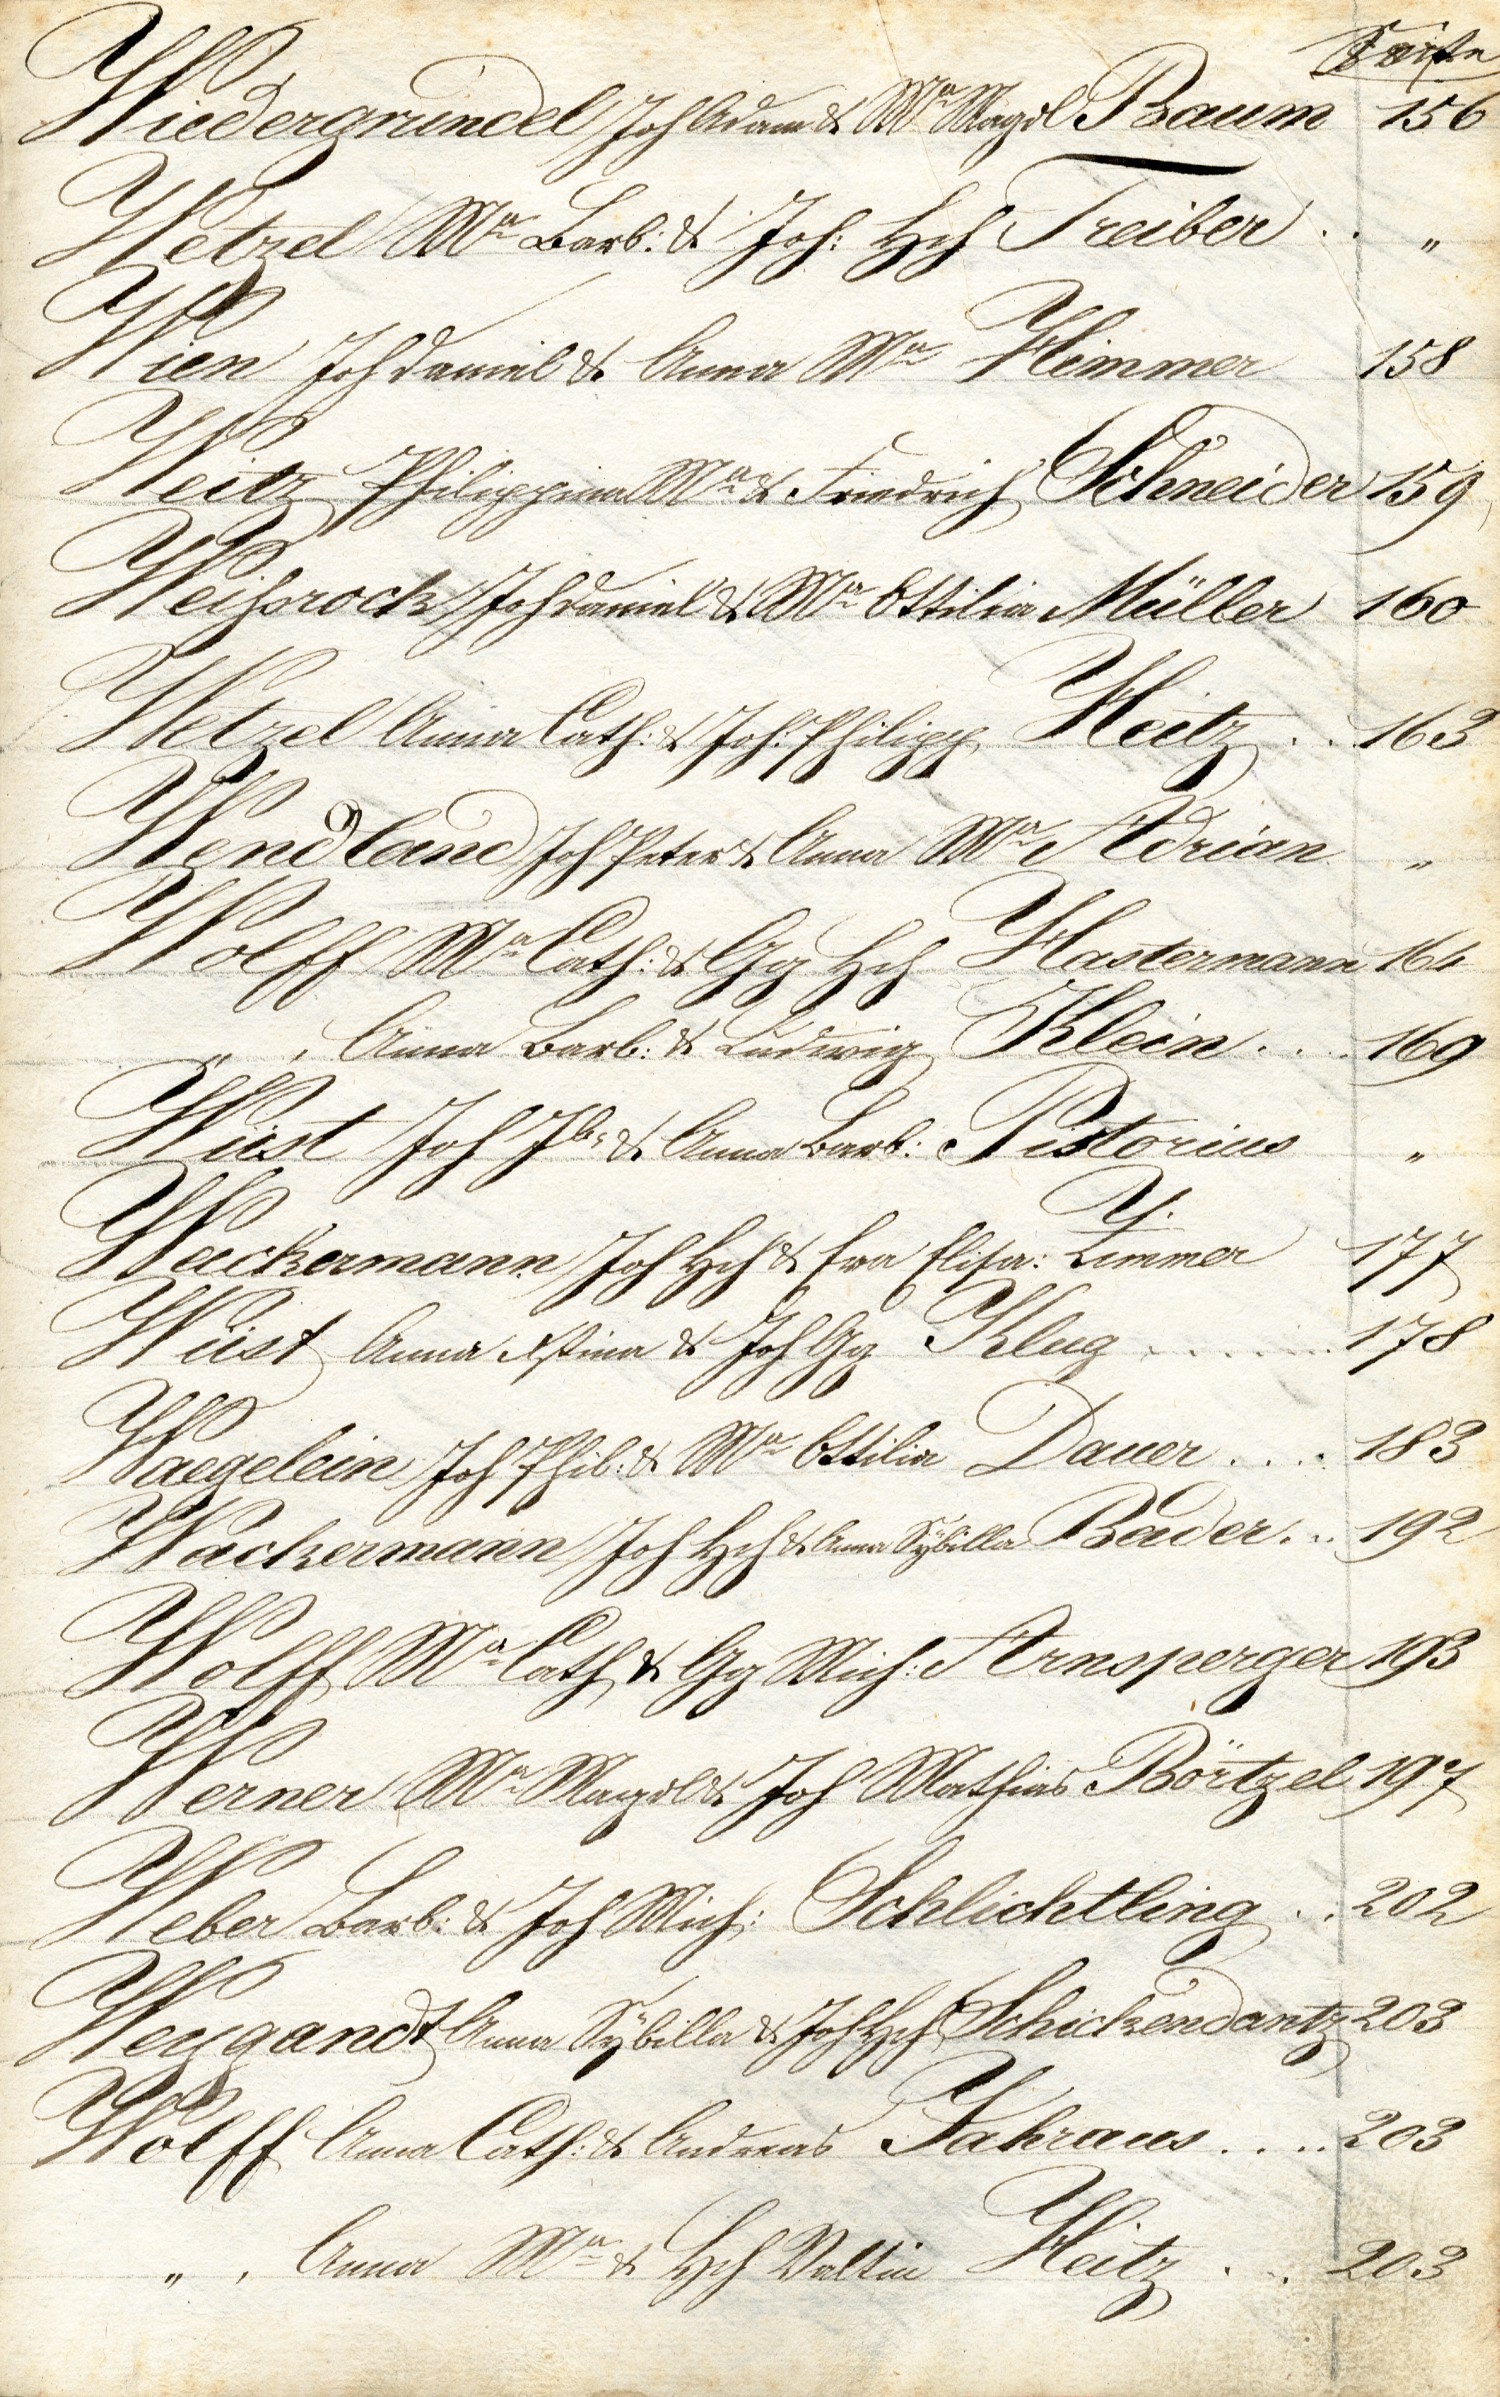 Seite
Wiedergrundel Joh Adam & Ma Magdl Baum 156
Wetzel Ma Barb: & Joh: Hch Treiber . . "
Wien Joh Daniel & Anna Ma Himmer 158
Weitz Philippina Ma & Friedrich Schneider 159
Weihrock Joh Daniel & Ma Ottilia Müller 160
Wetzel Anna Cath: & Joh: Philipp Heitz . . 163
Wendland Joh Peter & Anna Ma Adrian "
Wolff Ma Cath: & Gg Hch Hastermann 164
" , Anna Barb: & Ludwig Klein . . . . 169
Wüst Joh Jb: & Anna Barb: Pistorius "
Wackermann Joh Hch & Eva Elisa: Zimmer 177
Wüst Anna Xstina & Joh Gg Klug . . . . . . 178
Waegelein Joh Phil: & Ma Ottilia Dauer . . . . 183
Wackermann Joh Hch & Anna Sÿbilla Bader . . . 192
Wolff Ma Cath & Gg Mich: Arnsperger 193
Werner Ma Magdl & Joh Mathias Börtzel 197
Weber Barb: & Joh Mich: Schlichtling . . 202
Weygandt Anna Sÿbilla & Joh Hch Schickendantz 203
Wolff Anna Cath: & Andreas Fahraus . . . . 203
" , Anna Ma & Hch Valtin Heitz . . . 203